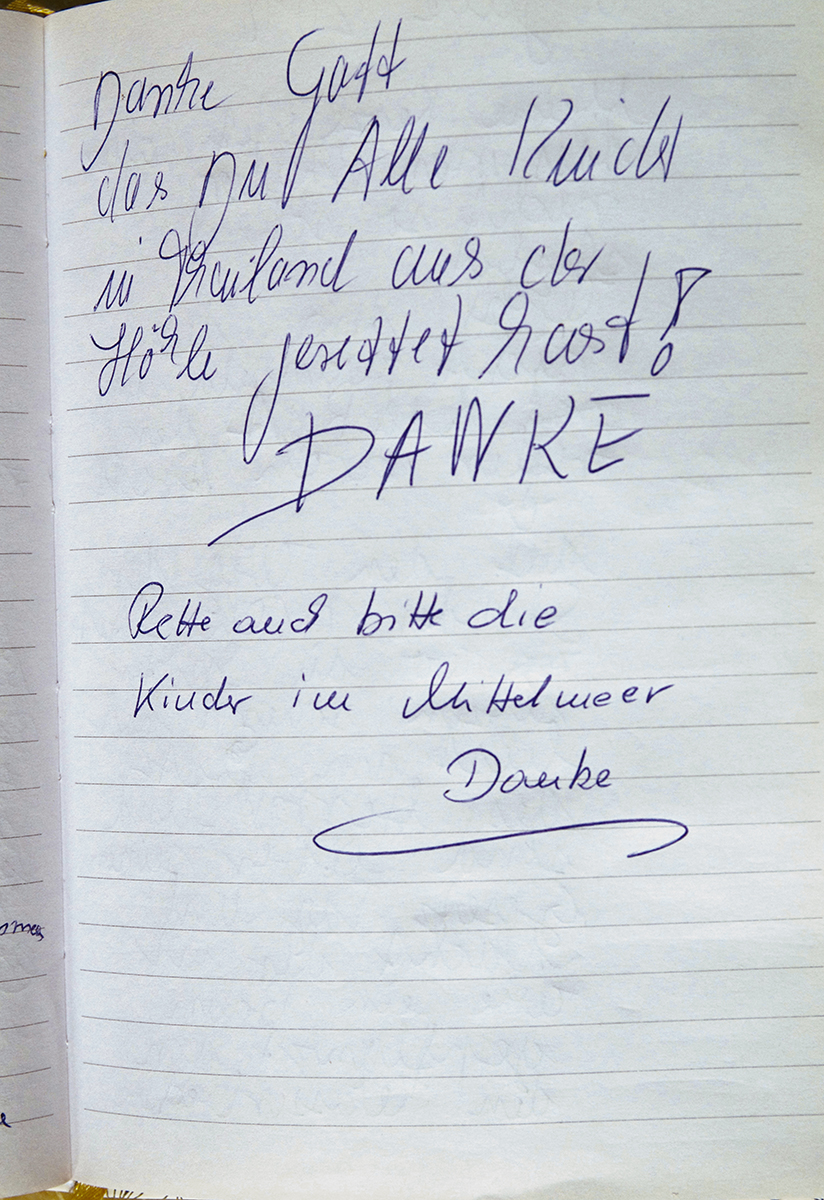 Danke Gott
das Du Alle Kinder
in Thailand aus der
Höhle gerettet hast!
DANKE
Rette auch bitte die
Kinder im Mittelmeer
Danke